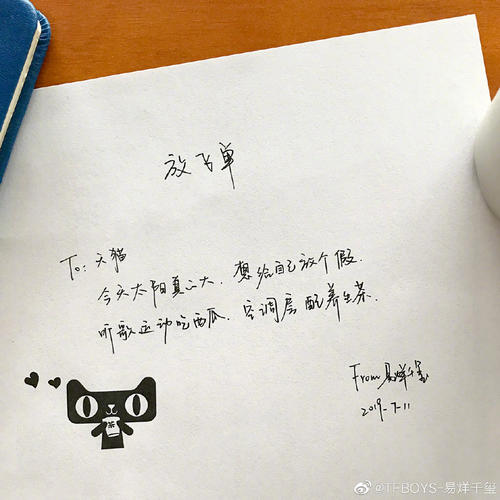 放飞单
To: 天猫
今天太阳真心大. 想给自己放个假.
听歌运动吃西瓜. 空调房配养生茶.
茶
From 易烊千玺
2019-7-11
@TFBOYS-易烊千玺